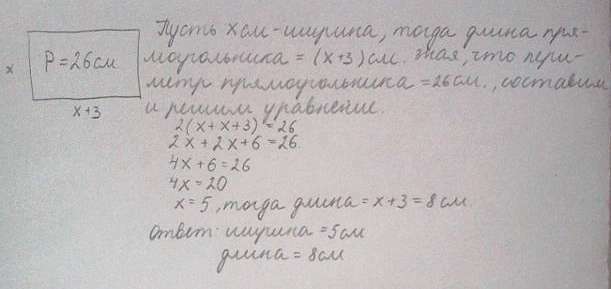 Пусть x см - ширина, тогда длина пря-
x
P = 26 см
моугольника = (x+3) см. Зная, что пери-
метр прямоугольника = 26 см., составим
x+3
и решим уравнение.
2(x+x+3) = 26
2x+2x+6 = 26.
4x+6 = 26
4x = 20
x = 5, тогда длина = x+3 = 8 см
Ответ: ширина = 5 см
длина = 8 см